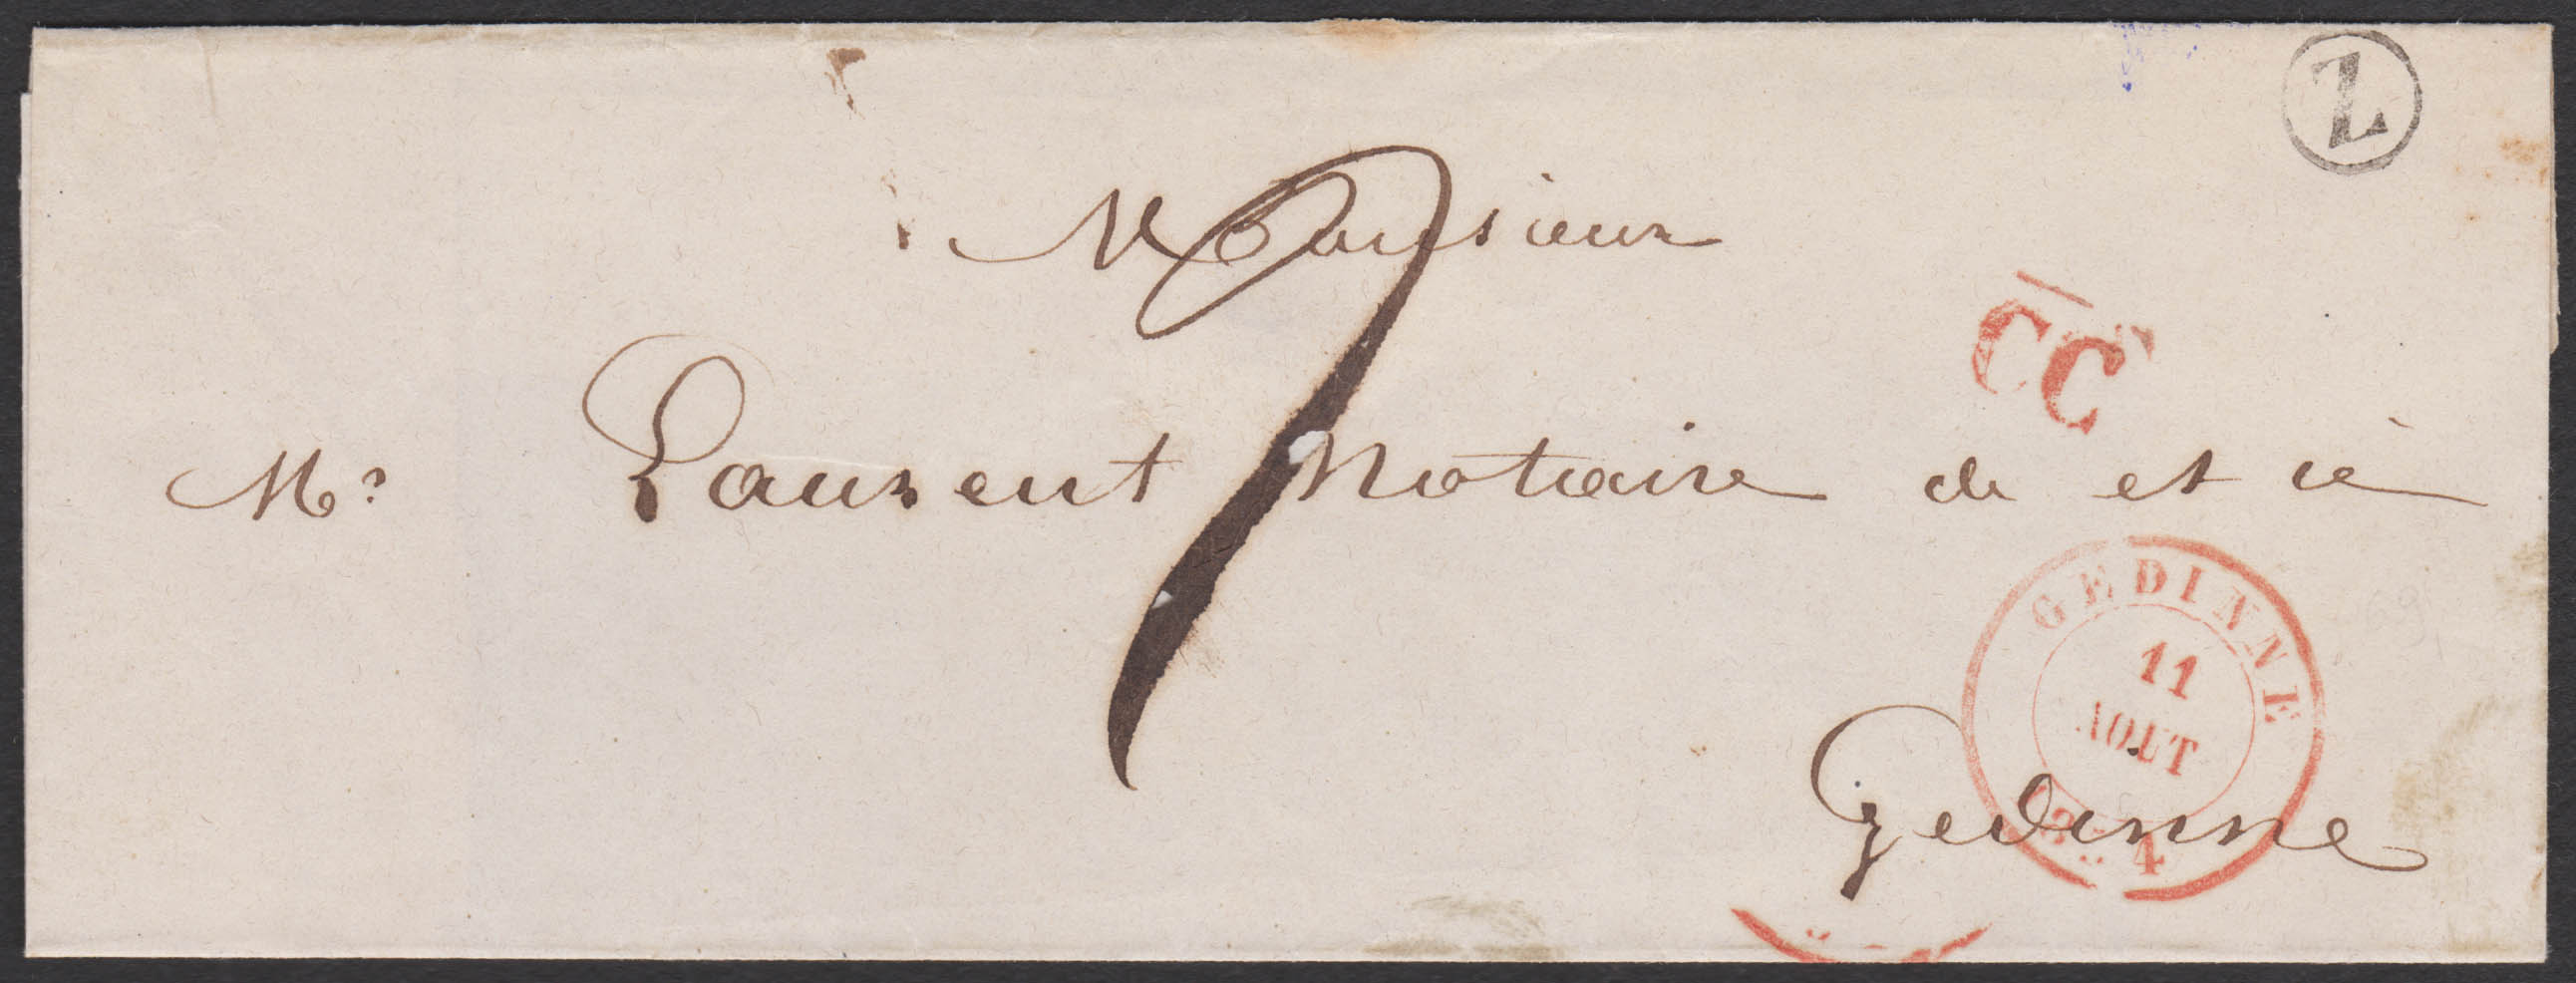 Z
Monsieur
CC
Mr Laurent Notaire de et à
GEDINNE
11
AOUT
Gedinne